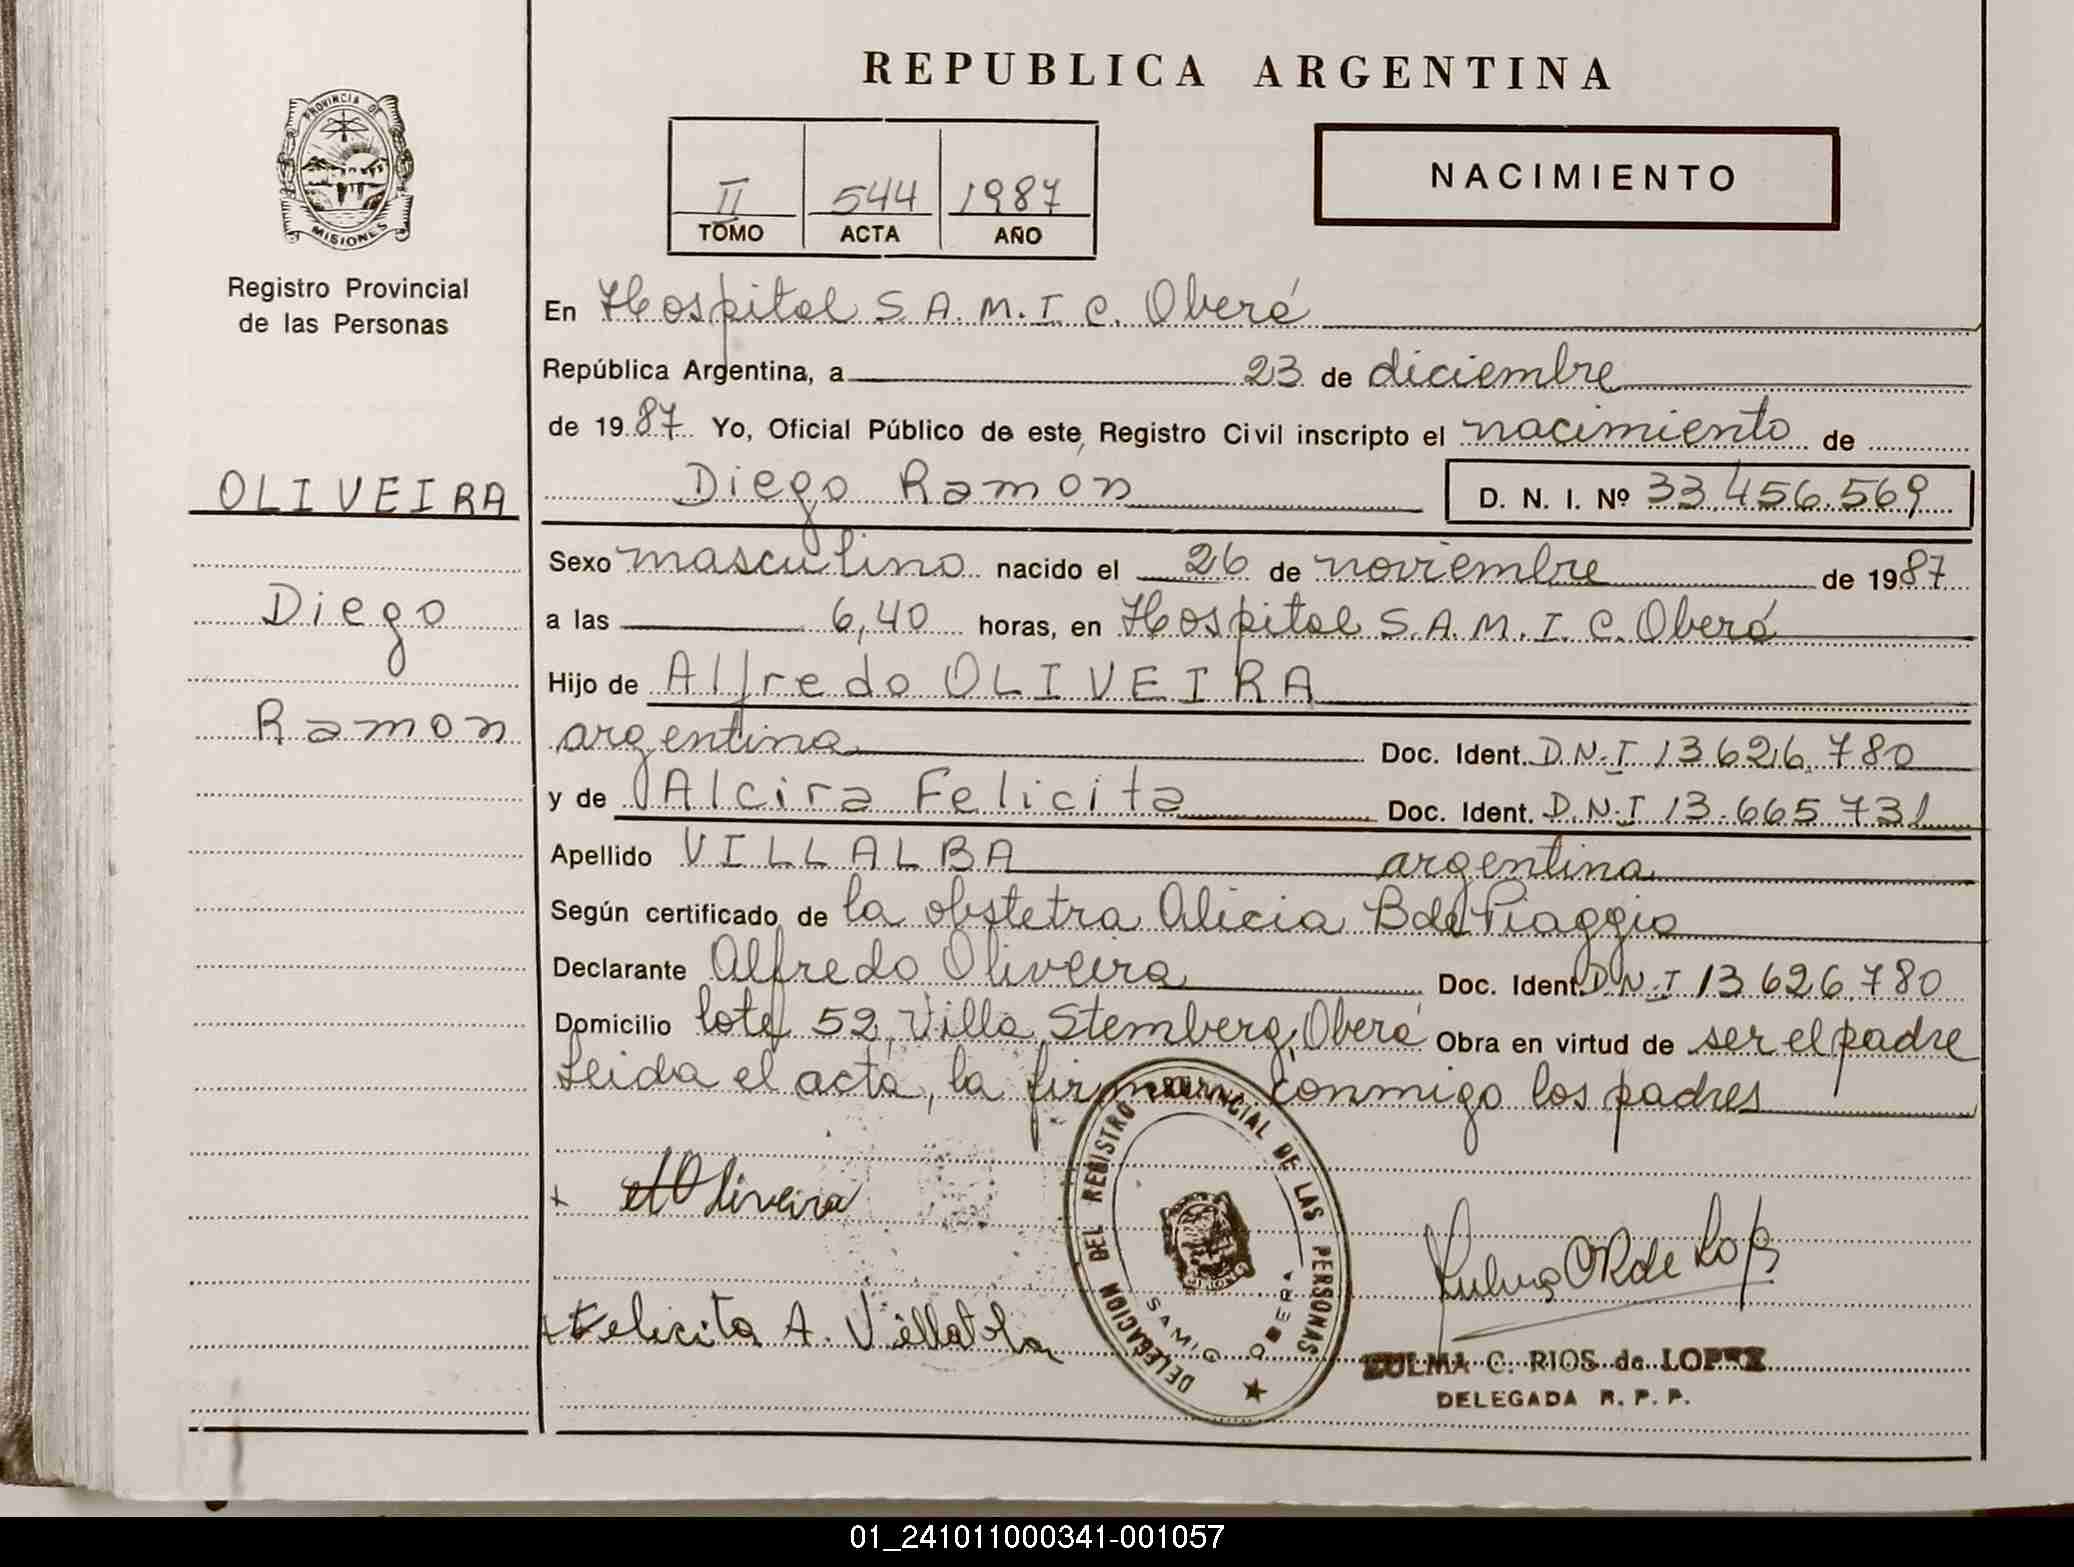 REPUBLICA ARGENTINA
PROVINCIA DE
MISIONES
Registro Provincial
de las Personas
II 544 1987
TOMO ACTA AÑO
NACIMIENTO
En Hospital S.A.M.I.C. Oberá
República Argentina, a 23 de diciembre
de 1987 Yo, Oficial Público de este Registro Civil inscripto el nacimiento de
OLIVEIRA
Diego Ramon D. N. I. Nº 33.456.569
Sexo masculino nacido el 26 de noviembre de 1987
Diego
a las 6,40 horas, en Hospital S.A.M.I.C. Oberá
Hijo de Alfredo OLIVEIRA
Ramon
argentina Doc. Ident. D.N.I 13.626.780
y de Alcira Felicita Doc. Ident. D.N.I 13.665.731
Apellido VILLALBA argentina
Según certificado de la obstetra Alicia B de Piaggio
Declarante Alfredo Oliveira Doc. Ident. D.N.I 13.626.780
Domicilio lote 52, Villa Stemberg, Oberá Obra en virtud de ser el padre
Leida el acta, la firman conmigo los padres
DELEGACION DEL REGISTRO PROVINCIAL DE LAS PERSONAS
SAMIC OBERA
MISIONES
Oliveira
Felicita A. Villalba
Zulma C R de Lopez
ZULMA C. RIOS de LOPEZ
DELEGADA R. P. P.
01_241011000341-001057